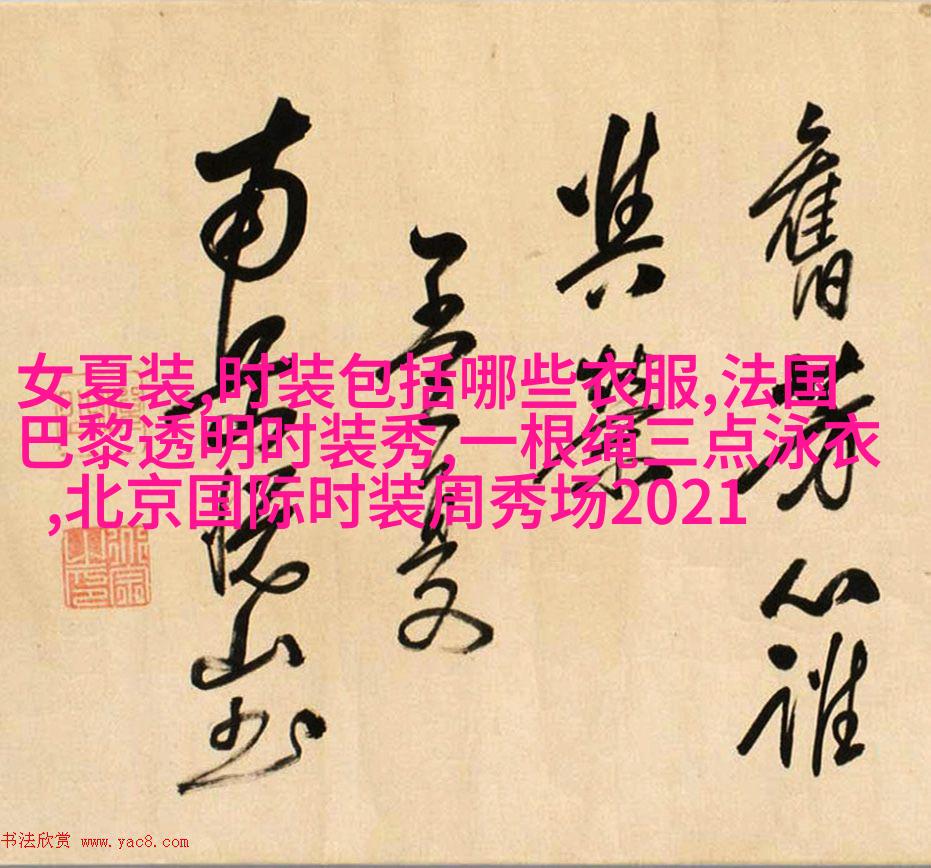 舊芳心誰
與
南山书
女夏装,时装包括哪些衣服,法国
巴黎透明时装秀,一根绳三点泳衣
,北京国际时装周秀场2021
书法欣赏 www.yac8.com